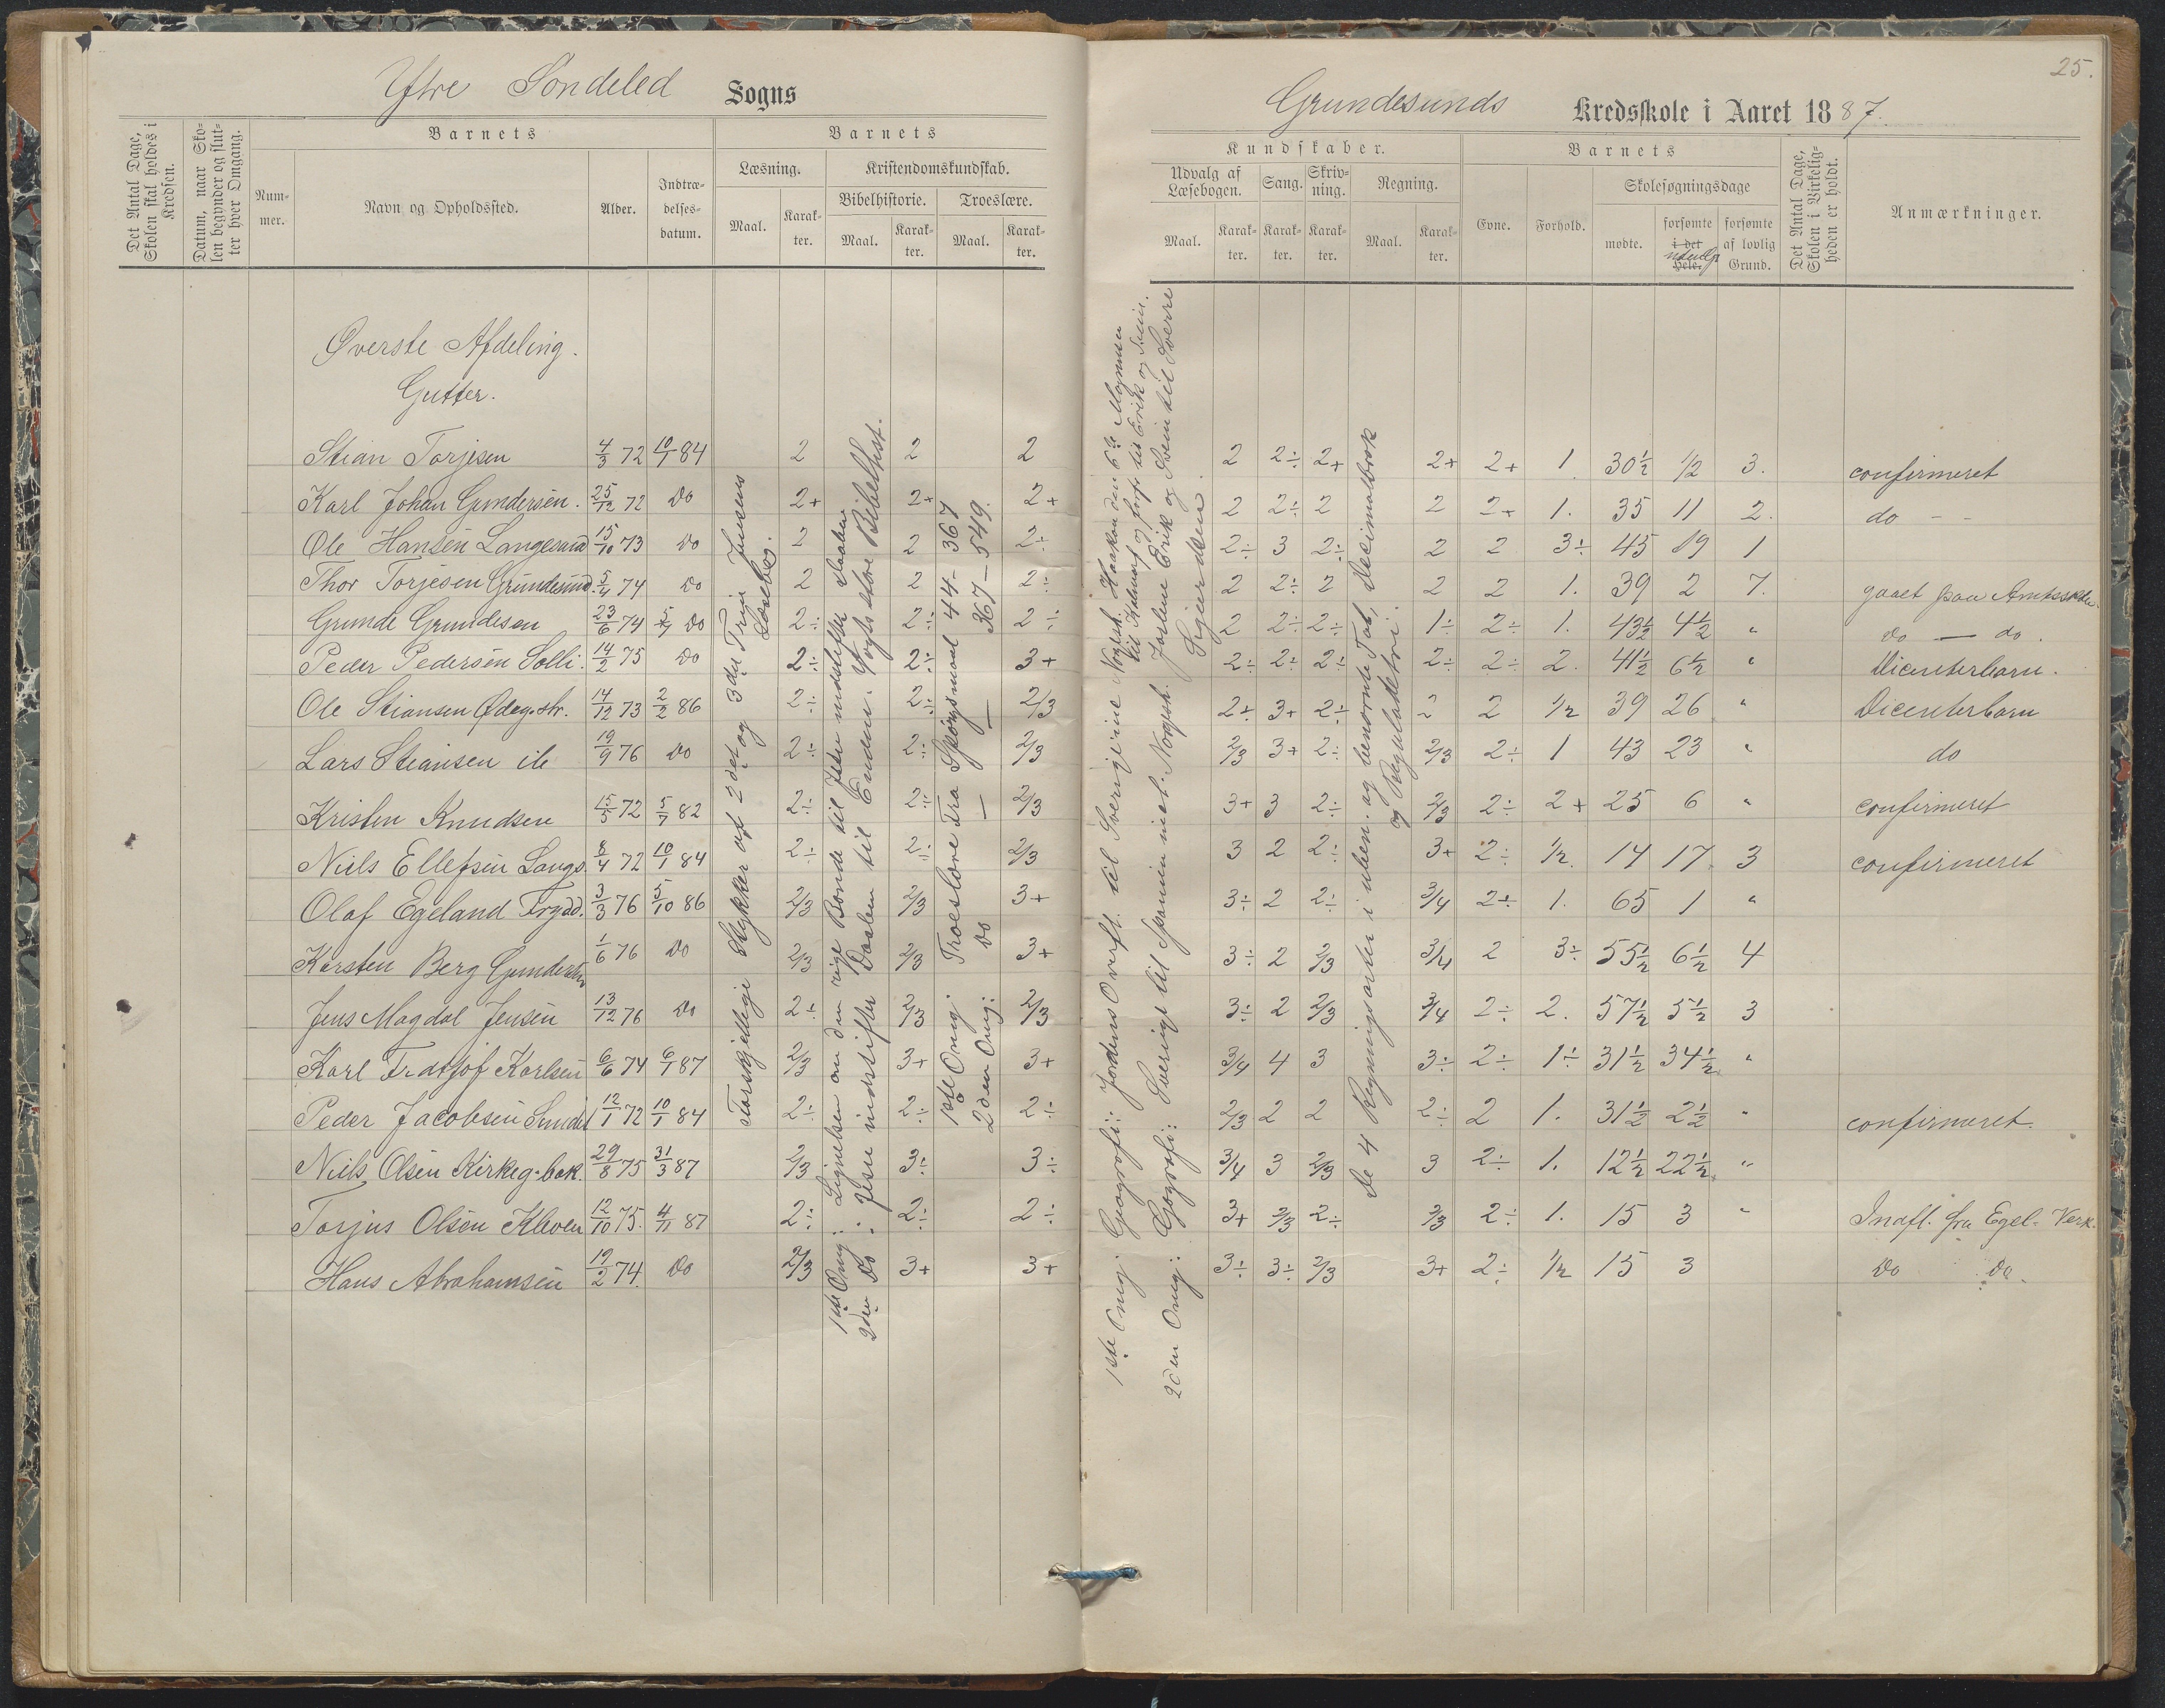 Ytre Søndeled Sogns
Det Antal Dage, Skolen skal holdes i Kredsen.
Datum, naar Skolen begynder og slutter hver Omgang.
Barnets
Nummer.
Navn og Opholdssted.
Alder.
Indtrædelsesdatum.
Barnets
Læsning.
Maal.
Karakter.
Kristendomskundskab.
Bibelhistorie.
Maal.
Karakter.
Troeslære.
Maal.
Karakter.
Øverste Afdeling.
Gutter.
Stian Torjesen 4/3 72 10/1 84 2 2 2
Karl Johan Gundersen. 25/12 72 Do 2+ 2+ 2+
Ole Hansen Langesund 15/10 73 Do 2 2 2÷
Thor Torjesen Grundesund. 5/4 74 Do 2 2 2÷
Grunde Grundesen 23/6 74 5/7 Do 2÷ 2÷ 2÷
Peder Pedersen Solli. 14/2 75 Do 2÷ 2÷ 3+
Ole Stiansen Ødeg.str. 14/12 73 2/2 86 2÷ 2÷ 2/3
Lars Stiansen ib 19/9 76 Do 2÷ 2÷ 2/3
Kristen Knudsen 15/5 72 5/7 82 2÷ 2÷ 2/3
Niels Ellefsen Langs. 8/4 72 10/1 84 2÷ 2÷ 2/3
Olaf Egeland Frydd. 3/3 76 5/10 86 2/3 2/3 3+
Karsten Berg Gundersen 1/6 76 Do 2/3 2/3 3+
Jens Magdal Jensen 13/12 76 Do 2÷ 2/3 2/3
Karl Fridtjof Karlsen 6/6 74 6/1 87 2/3 3+ 3+
Peder Jacobsen Sunde 12/1 72 10/1 84 2÷ 2÷ 2÷
Niels Olsen Kirkeg.bak. 29/8 75 31/3 87 2/3 3÷ 3÷
Torjus Olsen Kleven 12/10 75. 4/11 87 2÷ 2÷ 2÷
Hans Abrahamsen 19/2 74. Do 2/3 3+ 3+
Forskjellige Stykker af 2det og 3die Trin Jensens
Læsebog.
1ste Omg: Lignelsen om den rige Bonde til Jesu indstifter Daaben
2den Do: Jesu indstifter Daaben til Enden. Vogts store Bibelhist.
1ste Omg: Troeslære Fra Spørgsmaal 44–367
2den Omg: Do — — 367–549.
25.
Grundesunds Kredsskole i Aaret 1887.
Kundskaber.
Udvalg af Læsebogen.
Maal.
Karakter.
Sang.
Karakter.
Skrivning.
Karakter.
Regning.
Maal.
Karakter.
Barnets
Evne.
Forhold.
Skolesøgningsdage
mødte.
forsømte i det Hele.
forsømte af lovlig Grund.
Det Antal Dage, Skolen i Virkeligheden er holdt.
Anmærkninger.
2 2÷ 2+ 2+ 2+ 1. 30½ ½ 3. confirmeret
2 2÷ 2 2 2+ 1. 35 11 2. do – –
2÷ 3 2÷ 2 2 3÷ 45 19 1
2 2÷ 2 2 2 1. 39 2 7. gaaet paa Amtsskolen
2 2÷ 2÷ 1÷ 2÷ 1. 43½ 4½ " do — do.
2÷ 2÷ 2÷ 2÷ 2÷ 2. 41½ 6½ " Dicenterbarn.
2÷ 3+ 2÷ 2 2 1/2 39 26 " Dicenterbarn
2/3 3+ 2÷ 2/3 2÷ 1 43 23 " do
3+ 3 2÷ 2/3 2÷ 2+ 25 6 " confirmeret
3 2 2÷ 3+ 2÷ 1/2. 14 17 3 confirmeret
3÷ 2 2÷ 3/4 2÷ 1. 65 1 "
3÷ 2 2/3 3/4 2 3÷ 55½ 6½ 4
3÷ 2 2/3 3/4 2÷ 2. 57½ 5½ 3
3/4 4 3 3÷ 2÷ 1÷ 31½ 34½ "
2/3 2 2 2÷ 2 1. 31½ 2½ " confirmeret.
3/4 3 2/3 3 2÷ 1. 12½ 22½ "
3+ 2/3 2÷ 2/3 2÷ 1. 15 3 " Indfl. fra Egel. Verk.
3÷ 3÷ 2/3 3+ 2÷ 1/2 15 3 Do Do.
1ste Omg: Geografi: Jordens Overfl. til Sverige
2den Omg: Geografi: Sverige til Spanien incl. Norgsh. Jarlene Erik og Svein til Sverre
Sigurdsen.
De 4 Regningsarter i uben. og benevnte Tal, Decimalbrøk
og Reguladetri.